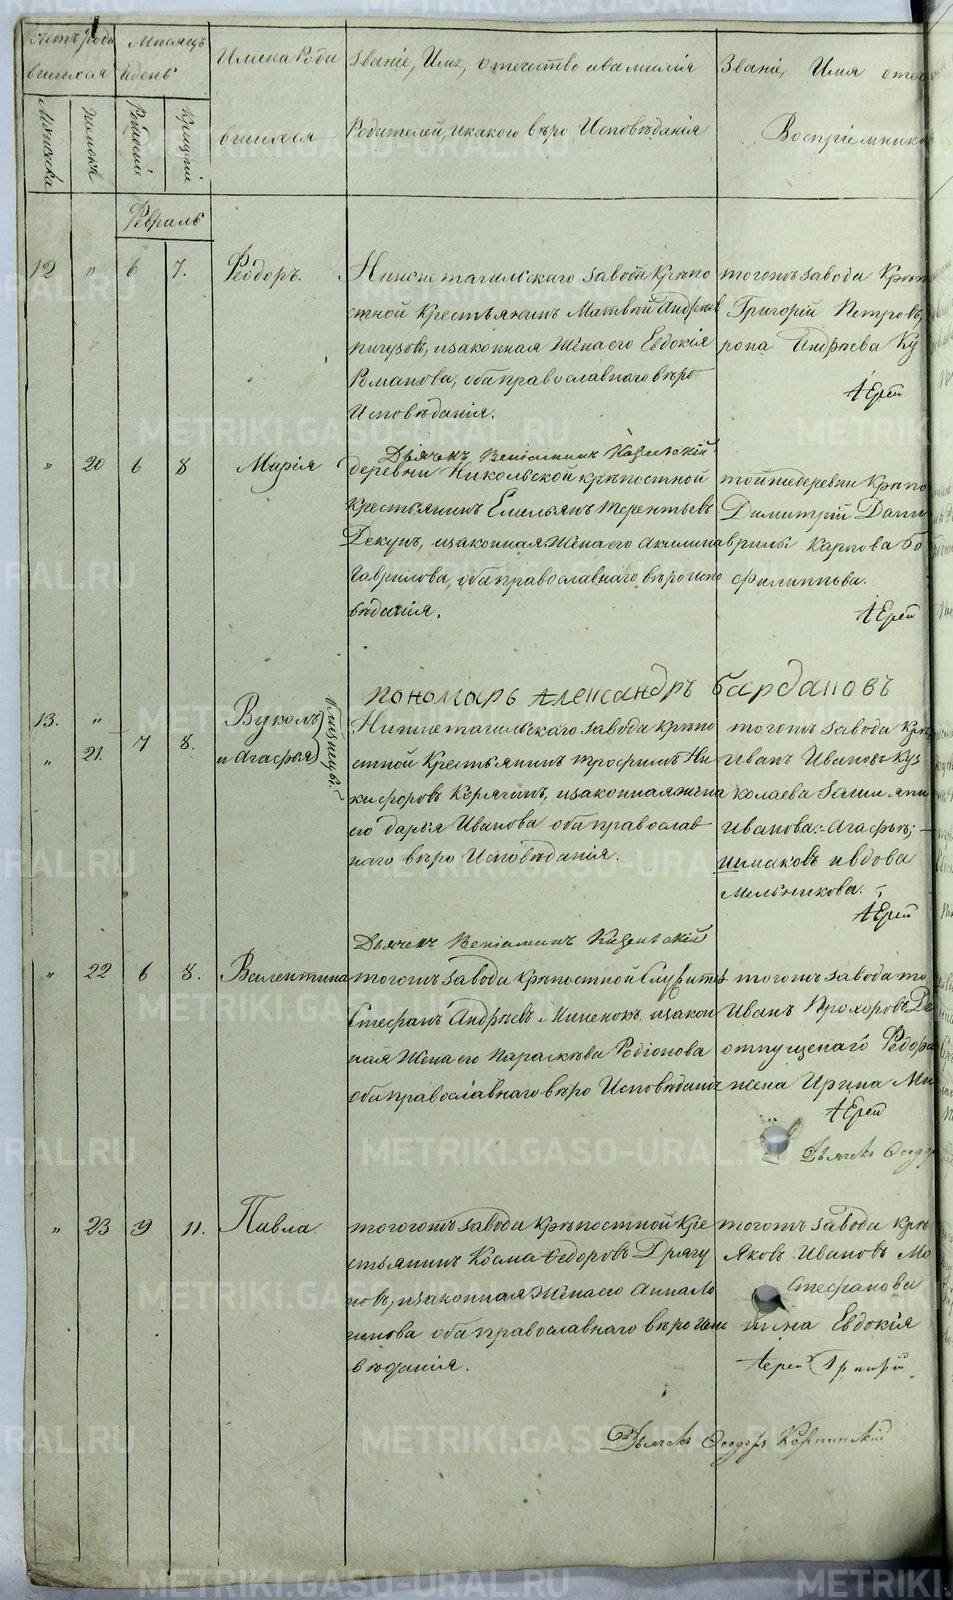 Счетъ роди
вшихся
Мѣсяцъ
и день
Имена Роди
вшихся
Званіе, Имя, отечество и фамилія
Родителей, и какого вѣро Исповѣданія
Званіе, Имя отеч
Воспріемнико
Мужеска
Женска
Рожденiе
Крещенiе
Февраль
12 " 6 7. Ѳеодоръ.
Нижнетагилскаго завода Крѣпо
стной Крестьянинъ Матвѣй Андрѣев
, и законная Жена его Евдокія
Романова, оба православнаго вѣро
Исповѣданія.
тогожъ завода Крѣп
Григорій Петровъ,
рона Андрѣева Ку
Іерей
Дьячекъ Веніаминъ
" 20 6 8 Марія
деревни Никольской крѣпостной
Крестьянинъ Емельянъ Терентьевъ
, и законная Жена его Акилина
Гаврилова, оба православнаго вѣро испо
вѣданія.
тойже деревни Крѣпо
Димитрій Дани
врилы Карпова Бо
филиппова.
Іерей
Пономарь Александръ Бардановъ
13. " 7 8. Вуколъ
" 21. и Агафья
близнецы.
Нижнетагильскаго завода крѣпо
стной Крестьянинъ Трофимъ Ни
кифоровъ , и законная жена
его Дарья Иванова оба православ
наго вѣро Исповѣданія.
тогожъ завода Крѣ
Иванъ Ивановъ Куз
колаева
Иванова.- Агафьи;
шмаковъ и вдова
Мельникова.
Іерей
Дьячекъ Веніаминъ
" 22 6 8. Валентина
тогожъ завода Крѣпостной Служитель
Стефанъ Андрѣевъ , и закон
ная Жена его Параскѣва Родіонова
оба православнаго вѣро Исповѣданія
тогожъ завода то
Иванъ Прохоровъ Де
отпущенаго Ѳедора
жена Ирина Ми
Іерей
Дьячекъ Ѳеодо
" 23 9 11. Павла
тогожъ завода крѣпостной кре
стьянинъ Косма Ѳедоровъ Дрягу
новъ, и законная Жена его Анна Ло
гинова оба православнаго вѣро Испо
вѣданія.
тогожъ завода крѣ
Яковъ Ивановъ Мо
Стефанова
Евдокія
Іерей Григорій
Дьячекъ Ѳеодоръ
METRIKI.GASO-URAL.RU